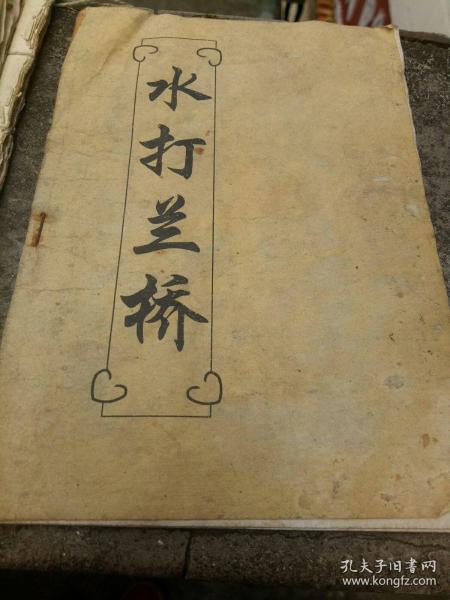 水打兰桥
孔夫子旧书网
www.kongfz.com